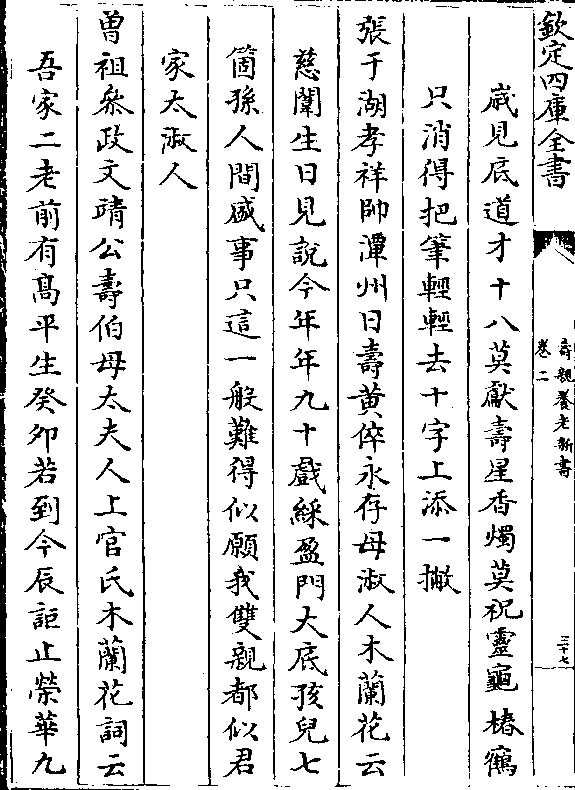 欽定四庫全書
壽親養老新書
卷二
三十七
歳見底道才十八莫獻壽星香燭莫祝靈龜椿鶴
只消得把筆輕輕去十字上添一撇
張于湖孝祥帥潭州日壽黄倅永存母淑人木蘭花云
慈闈生日見說今年年九十戲綵盈門大底孩兒七
箇孫人間盛事只這一般難得似願我雙親都似君
家太淑人
曽祖叅政文靖公壽伯母太夫人上官氏木蘭花詞云
吾家二老前有髙平生癸夘若到今辰詎止榮華九